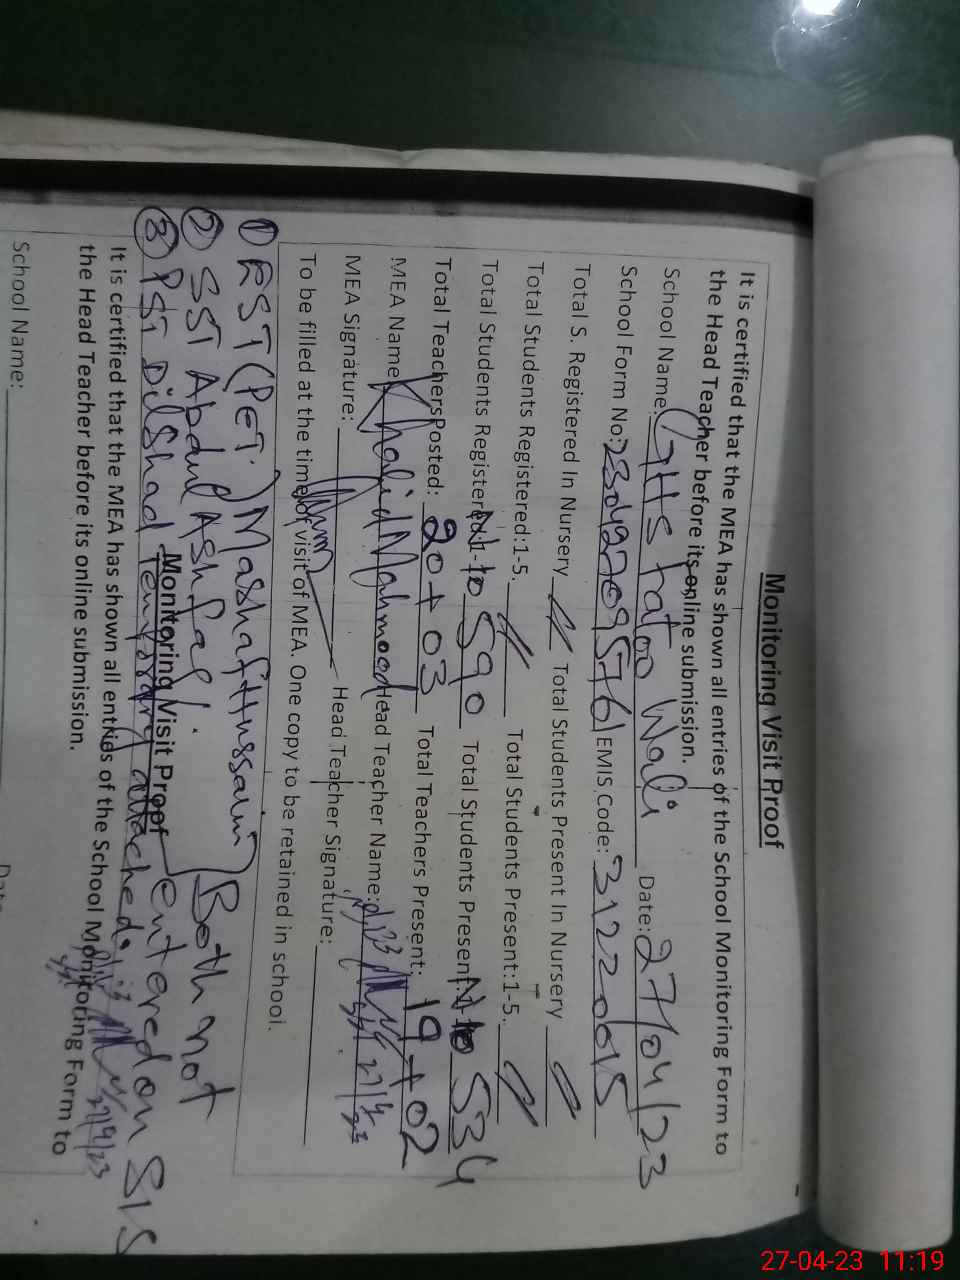 Monitoring Visit Proof
It is certified that the MEA has shown all entries of the School Monitoring Form to
the Head Teacher before its online submission.
School Name: GHS Fatoo Wali Date: 27/04/23
School Form No: 230427095761 EMIS Code: 31220015
Total S. Registered In Nursery Total Students Present In Nursery
Total Students Registered:1-5. Total Students Present:1-5.
Total Students Registered:1- N to 590 Total Students Present: N to 534
Total Teachers Posted: 20+03 Total Teachers Present: 19+02
MEA Name: Khalid Mahmood Head Teacher Name:
MEA Signature: Head Teacher Signature:
To be filled at the time of visit of MEA. One copy to be retained in school.
① EST (PET) Mashaf Hussain) Both not
② SST Abdul Ashfaq. entered on SIS
③ PST Dilshad Temporary attached.
Monitoring Visit Proof
It is certified that the MEA has shown all entries of the School Monitoring Form to
27/4/23
the Head Teacher before its online submission.
School Name: Date
27-04-23 11:19